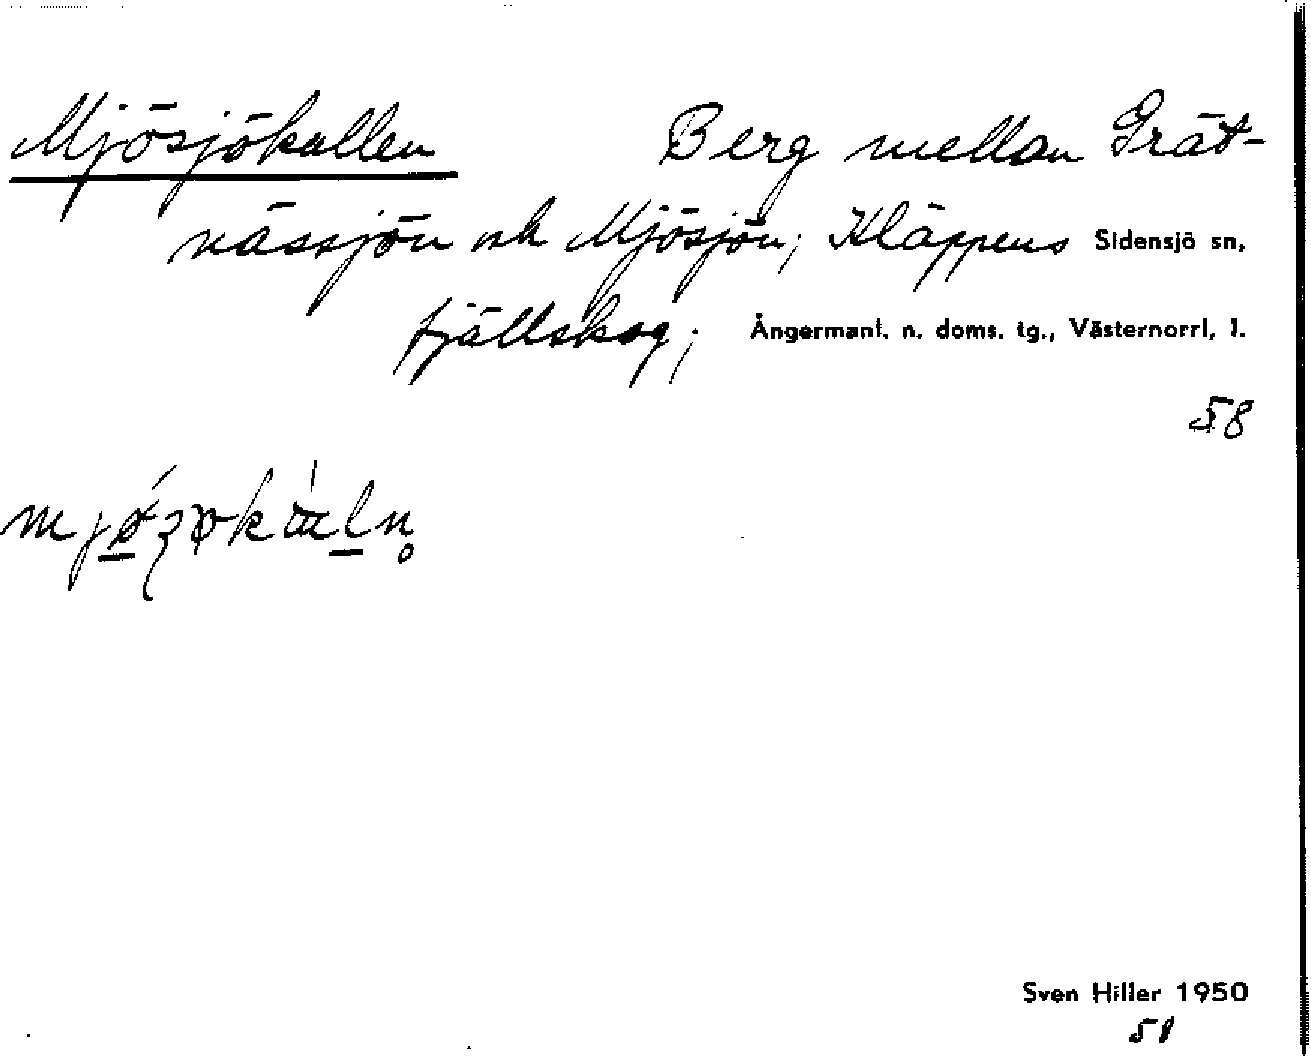 Mjösjökullen Berg mellan Grät-
nässjön och Mjösjön; Kläppens Sidensjö sn,
fjällskog; Ångermanl. n. doms. tg., Västernorrl. l.
58
Sven Hiller 1950
51